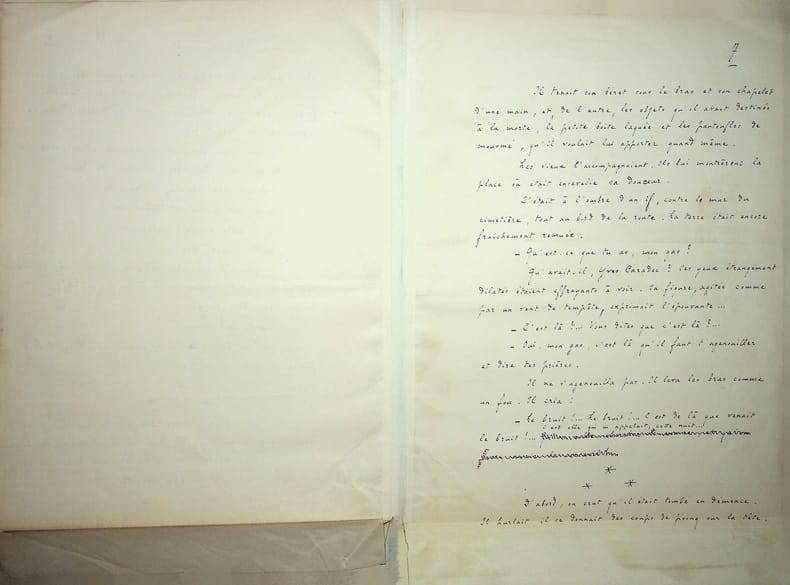 7
Il tenait son béret sous le bras et son chapelet
d'une main, et, de l'autre, les objets qu'il avait destinés
à la morte, la petite boîte laquée et les pantoufles de
mousmé, qu'il voulait lui apporter quand même.
Les vieux l'accompagnaient. Ils lui montrèrent la
place où était ensevelie sa douceur.
C'était à l'ombre d'un if, contre le mur du
cimetière, tout au bord de la route. La terre était encore
fraîchement remuée.
– Qu'est-ce que tu as, mon gas ?
Qu'avait-il, Yves Caradec ? Ses yeux étrangement
dilatés étaient effrayants à voir. Sa figure, agitée comme
par un vent de tempête, exprimait l'épouvante...
– C'est là ?... Vous dites que c'est là ?...
– Oui, mon gas, c'est là qu'il faut t'agenouiller
et dire tes prières.
Il ne s'agenouilla pas. Il leva les bras comme
un fou. Il cria :
– Le bruit !... Le bruit !... C'est de là que venait
c'est elle qui m'appelait, cette nuit...
le bruit !...
* * *
D'abord, on crut qu'il était tombé en démence.
Il hurlait, il se donnait des coups de poing sur la tête.